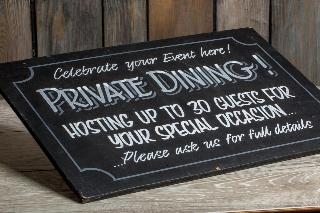 Celebrate your Event here!
PRIVATE DINING!
HOSTING UP TO 30 GUESTS FOR
YOUR SPECIAL OCCASION...
...Please ask us for full details